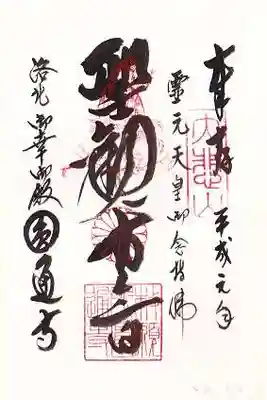 奉拝 平成元年
靈元天皇御念持佛
聖観世音
洛北御幸御殿圓通寺
大悲山